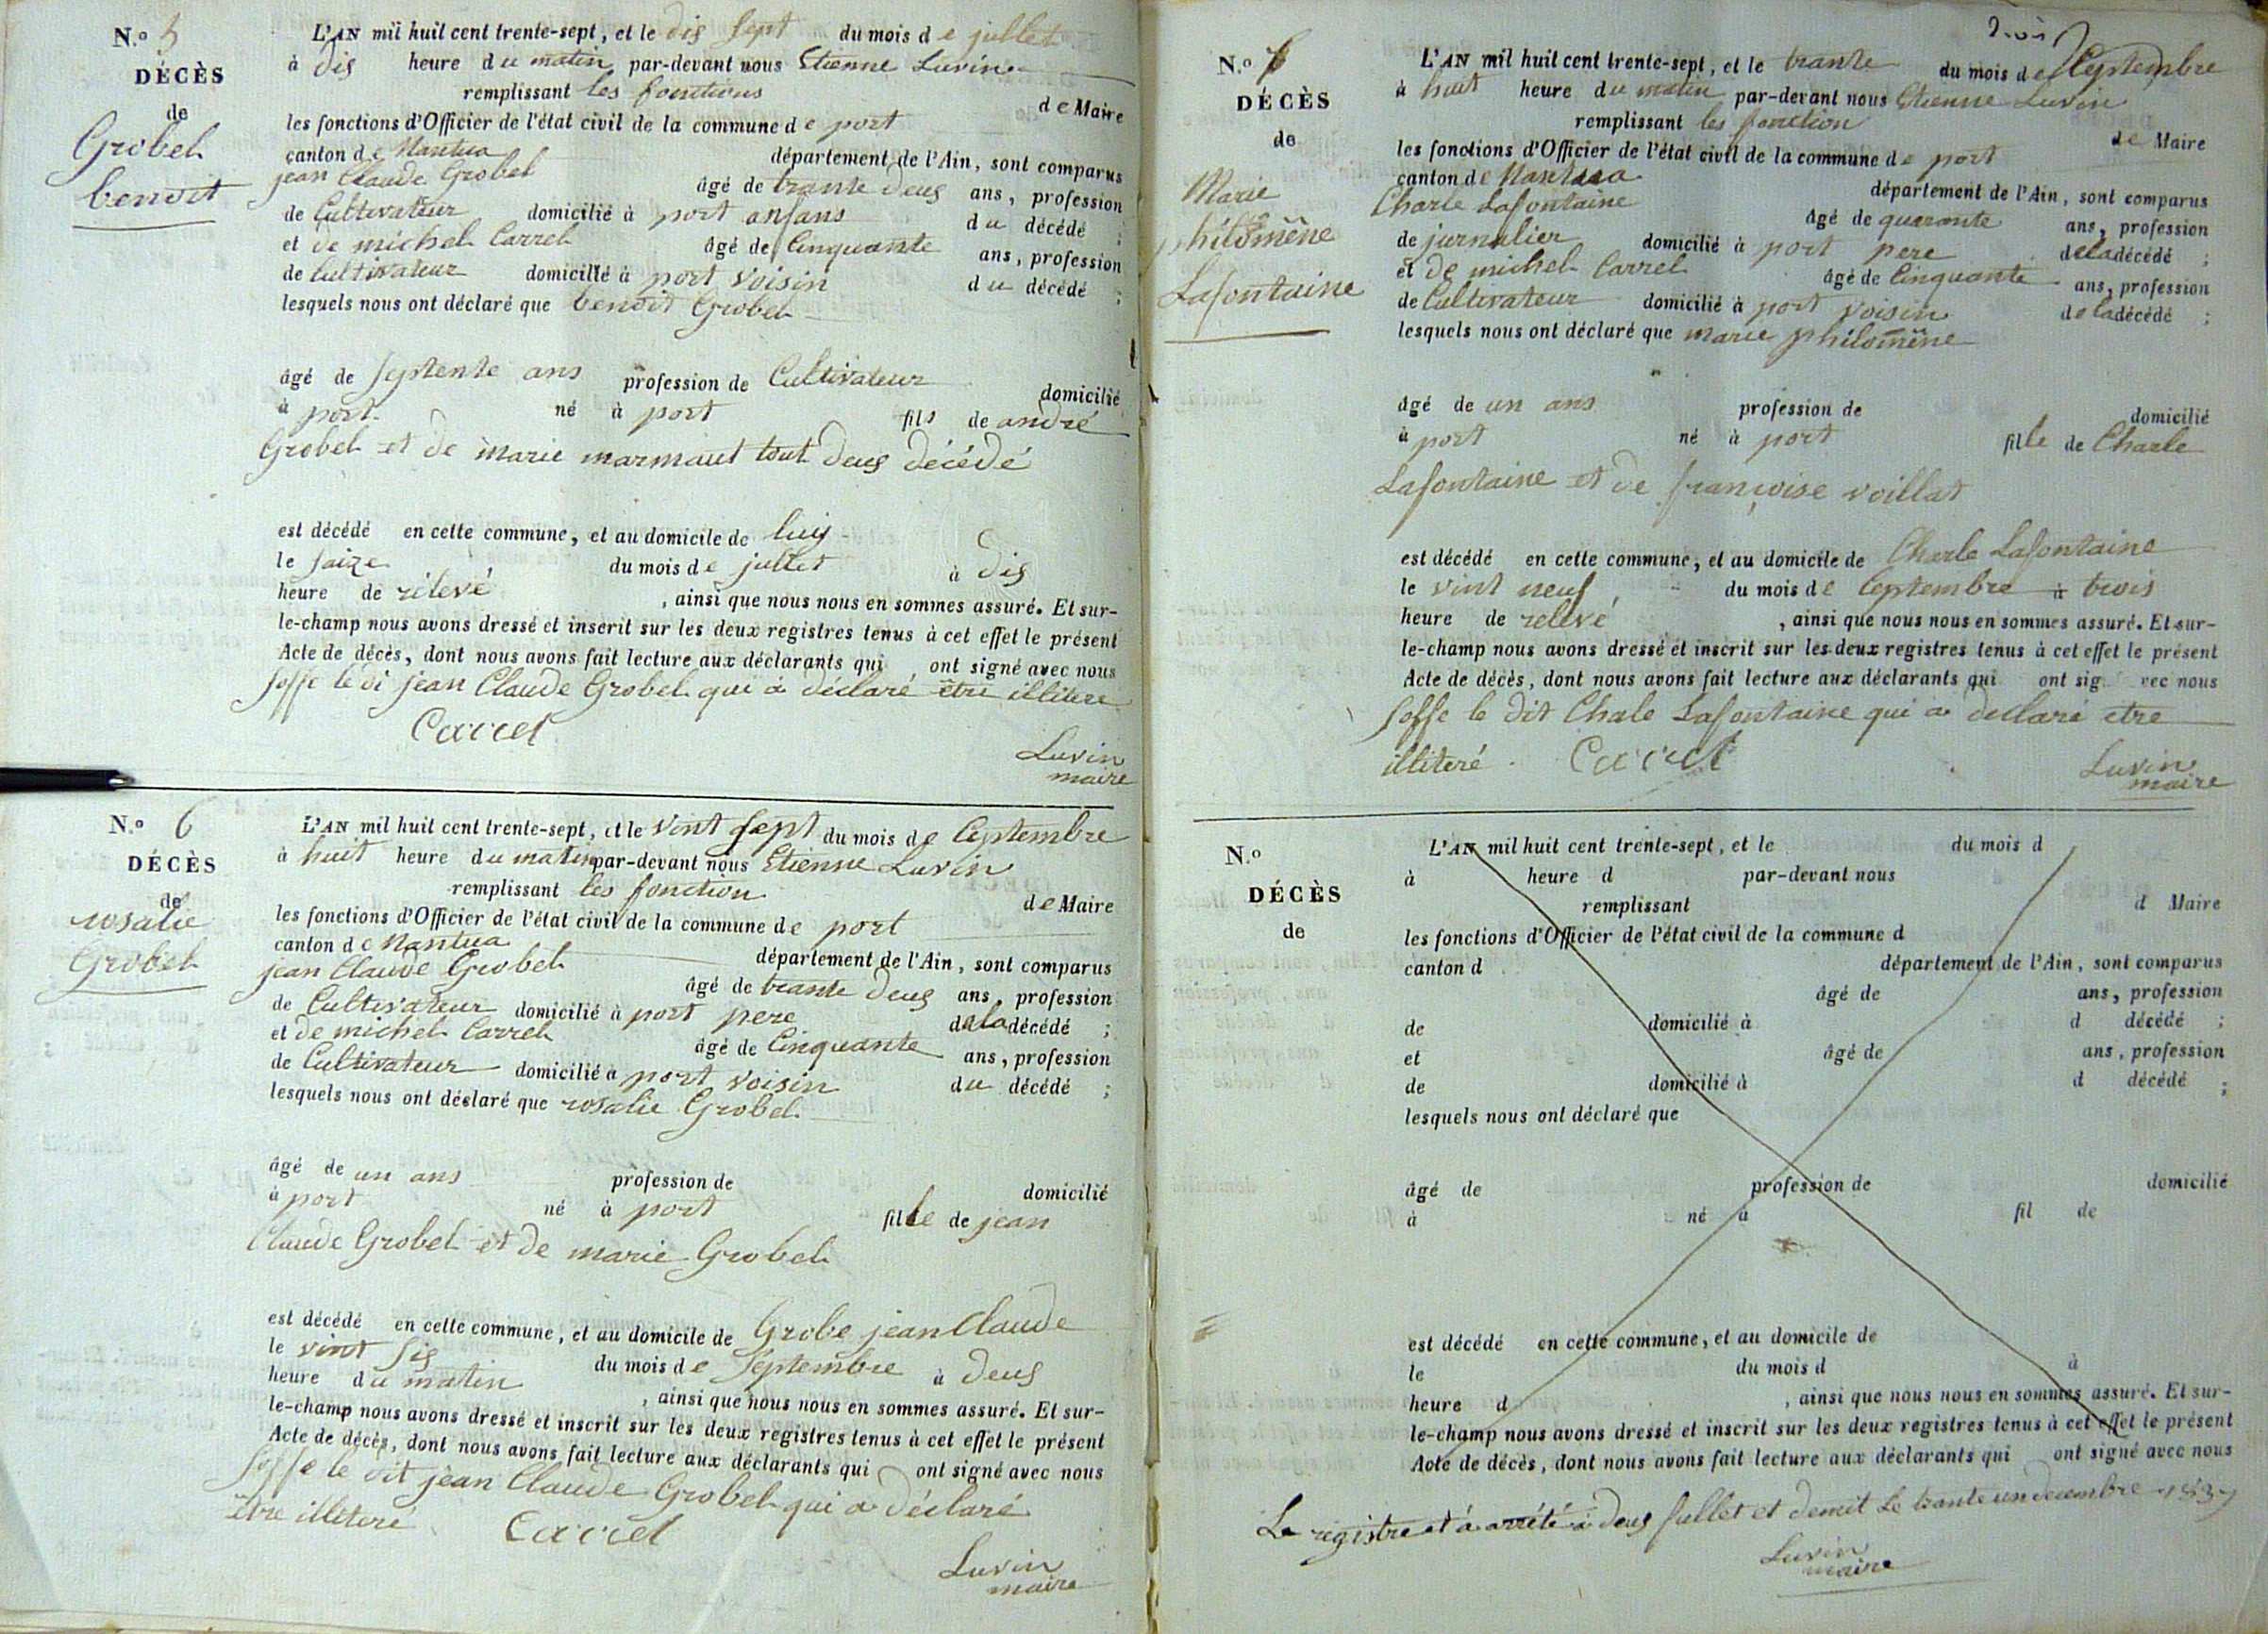 N.o 5
DÉCÈS
de
Grobel
benoit
L'AN mil huit cent trente-sept, et le dis sept du mois de jullet
à dis heure du matin par-devant nous Etienne Luvin
remplissant les fonctions de Maire
les fonctions d'Officier de l'état civil de la commune de port
canton de Nantua département de l'Ain, sont comparus
jean Claude Grobel âgé de trante deus ans, profession
de Cultivateur domicilié à port anfans du décédé ;
et de michel Carrel âgé de Cinquante ans, profession
de Cultivateur domicilié à port voisin du décédé ;
lesquels nous ont déclaré que benoit Grobel
âgé de septente ans profession de Cultivateur domicilié
à port né à port fils de andré
Grobel et de marie marmaut tout deus décédé
est décédé en cette commune, et au domicile de luij
le saize du mois de jullet à dis
heure de rélevé , ainsi que nous nous en sommes assuré. Et sur-
le-champ nous avons dressé et inscrit sur les deux registres tenus à cet effet le présent
Acte de décès, dont nous avons fait lecture aux déclarants qui ont signé avec nous
soffe le di jean Claude Grobel qui a déclaré être illitere
Carrel
Luvin
maire
N.o 6
DÉCÈS
de
rosalie
Grobel
L'AN mil huit cent trente-sept, et le vint sept du mois de Ceptembre
à huit heure du matin par-devant nous Etienne Luvin
remplissant les fonction de Maire
les fonctions d'Officier de l'état civil de la commune de port
canton de Nantua département de l'Ain, sont comparus
jean Claude Grobel âgé de trante deus ans, profession
de Cultivateur domicilié à port pere de la décédé ;
et de michel Carrel âgé de Cinquante ans, profession
de Cultivateur domicilié à port voisin du décédé ;
lesquels nous ont déclaré que rosalie Grobel
âgé de un ans profession de domicilié
à port né à port fille de jean
Claude Grobel et de marie Grobel
est décédé en cette commune, et au domicile de Grobe jean Claude
le vint sis du mois de Septembre à deus
heure du matin , ainsi que nous nous en sommes assuré. Et sur-
le-champ nous avons dressé et inscrit sur les deux registres tenus à cet effet le présent
Acte de décès, dont nous avons fait lecture aux déclarants qui ont signé avec nous
soffe le dit jean Claude Grobel qui a déclaré
être illiteré Carrel
Luvin
maire
N.o 7
DÉCÈS
de
Marie
philomène
Lafontaine
L'AN mil huit cent trente-sept, et le trante du mois de Ceptembre
à huit heure du matin par-devant nous Etienne Luvin
remplissant les fonction de Maire
les fonctions d'Officier de l'état civil de la commune de port
canton de Nantua département de l'Ain, sont comparus
Charle Lafontaine âgé de quarante ans, profession
de jurnalier domicilié à port pere de la décédé ;
et de michel Carrel âgé de Cinquante ans, profession
de Cultivateur domicilié à port voisin de la décédé ;
lesquels nous ont déclaré que marie philomène
âgé de un ans profession de domicilié
à port né à port fille de Charle
Lafontaine et de françoise voillat
est décédé en cette commune, et au domicile de Charle Lafontaine
le vint neuf du mois de Ceptembre à trois
heure de relevé , ainsi que nous nous en sommes assuré. Et sur-
le-champ nous avons dressé et inscrit sur les deux registres tenus à cet effet le présent
Acte de décès, dont nous avons fait lecture aux déclarants qui ont sig vec nous
soffe le dit Chale Lafontaine qui a declaré etre
illiteré . Carrel
Luvin
maire
N.o
DÉCÈS
de
L'AN mil huit cent trente-sept, et le du mois d
à heure d par-devant nous
remplissant d Maire
les fonctions d'Officier de l'état civil de la commune d
canton d département de l'Ain, sont comparus
âgé de ans, profession
de domicilié à d décédé ;
et âgé de ans, profession
de domicilié à d décédé ;
lesquels nous ont déclaré que
âgé de profession de domicilié
à né à fil de
est décédé en cette commune, et au domicile de
le du mois d à
heure d , ainsi que nous nous en sommes assuré. Et sur-
le-champ nous avons dressé et inscrit sur les deux registres tenus à cet effet le présent
Acte de décès, dont nous avons fait lecture aux déclarants qui ont signé avec nous
Le registre et á arrété á deus fullet et demit Le trante un decembre 1837
Luvin
maire